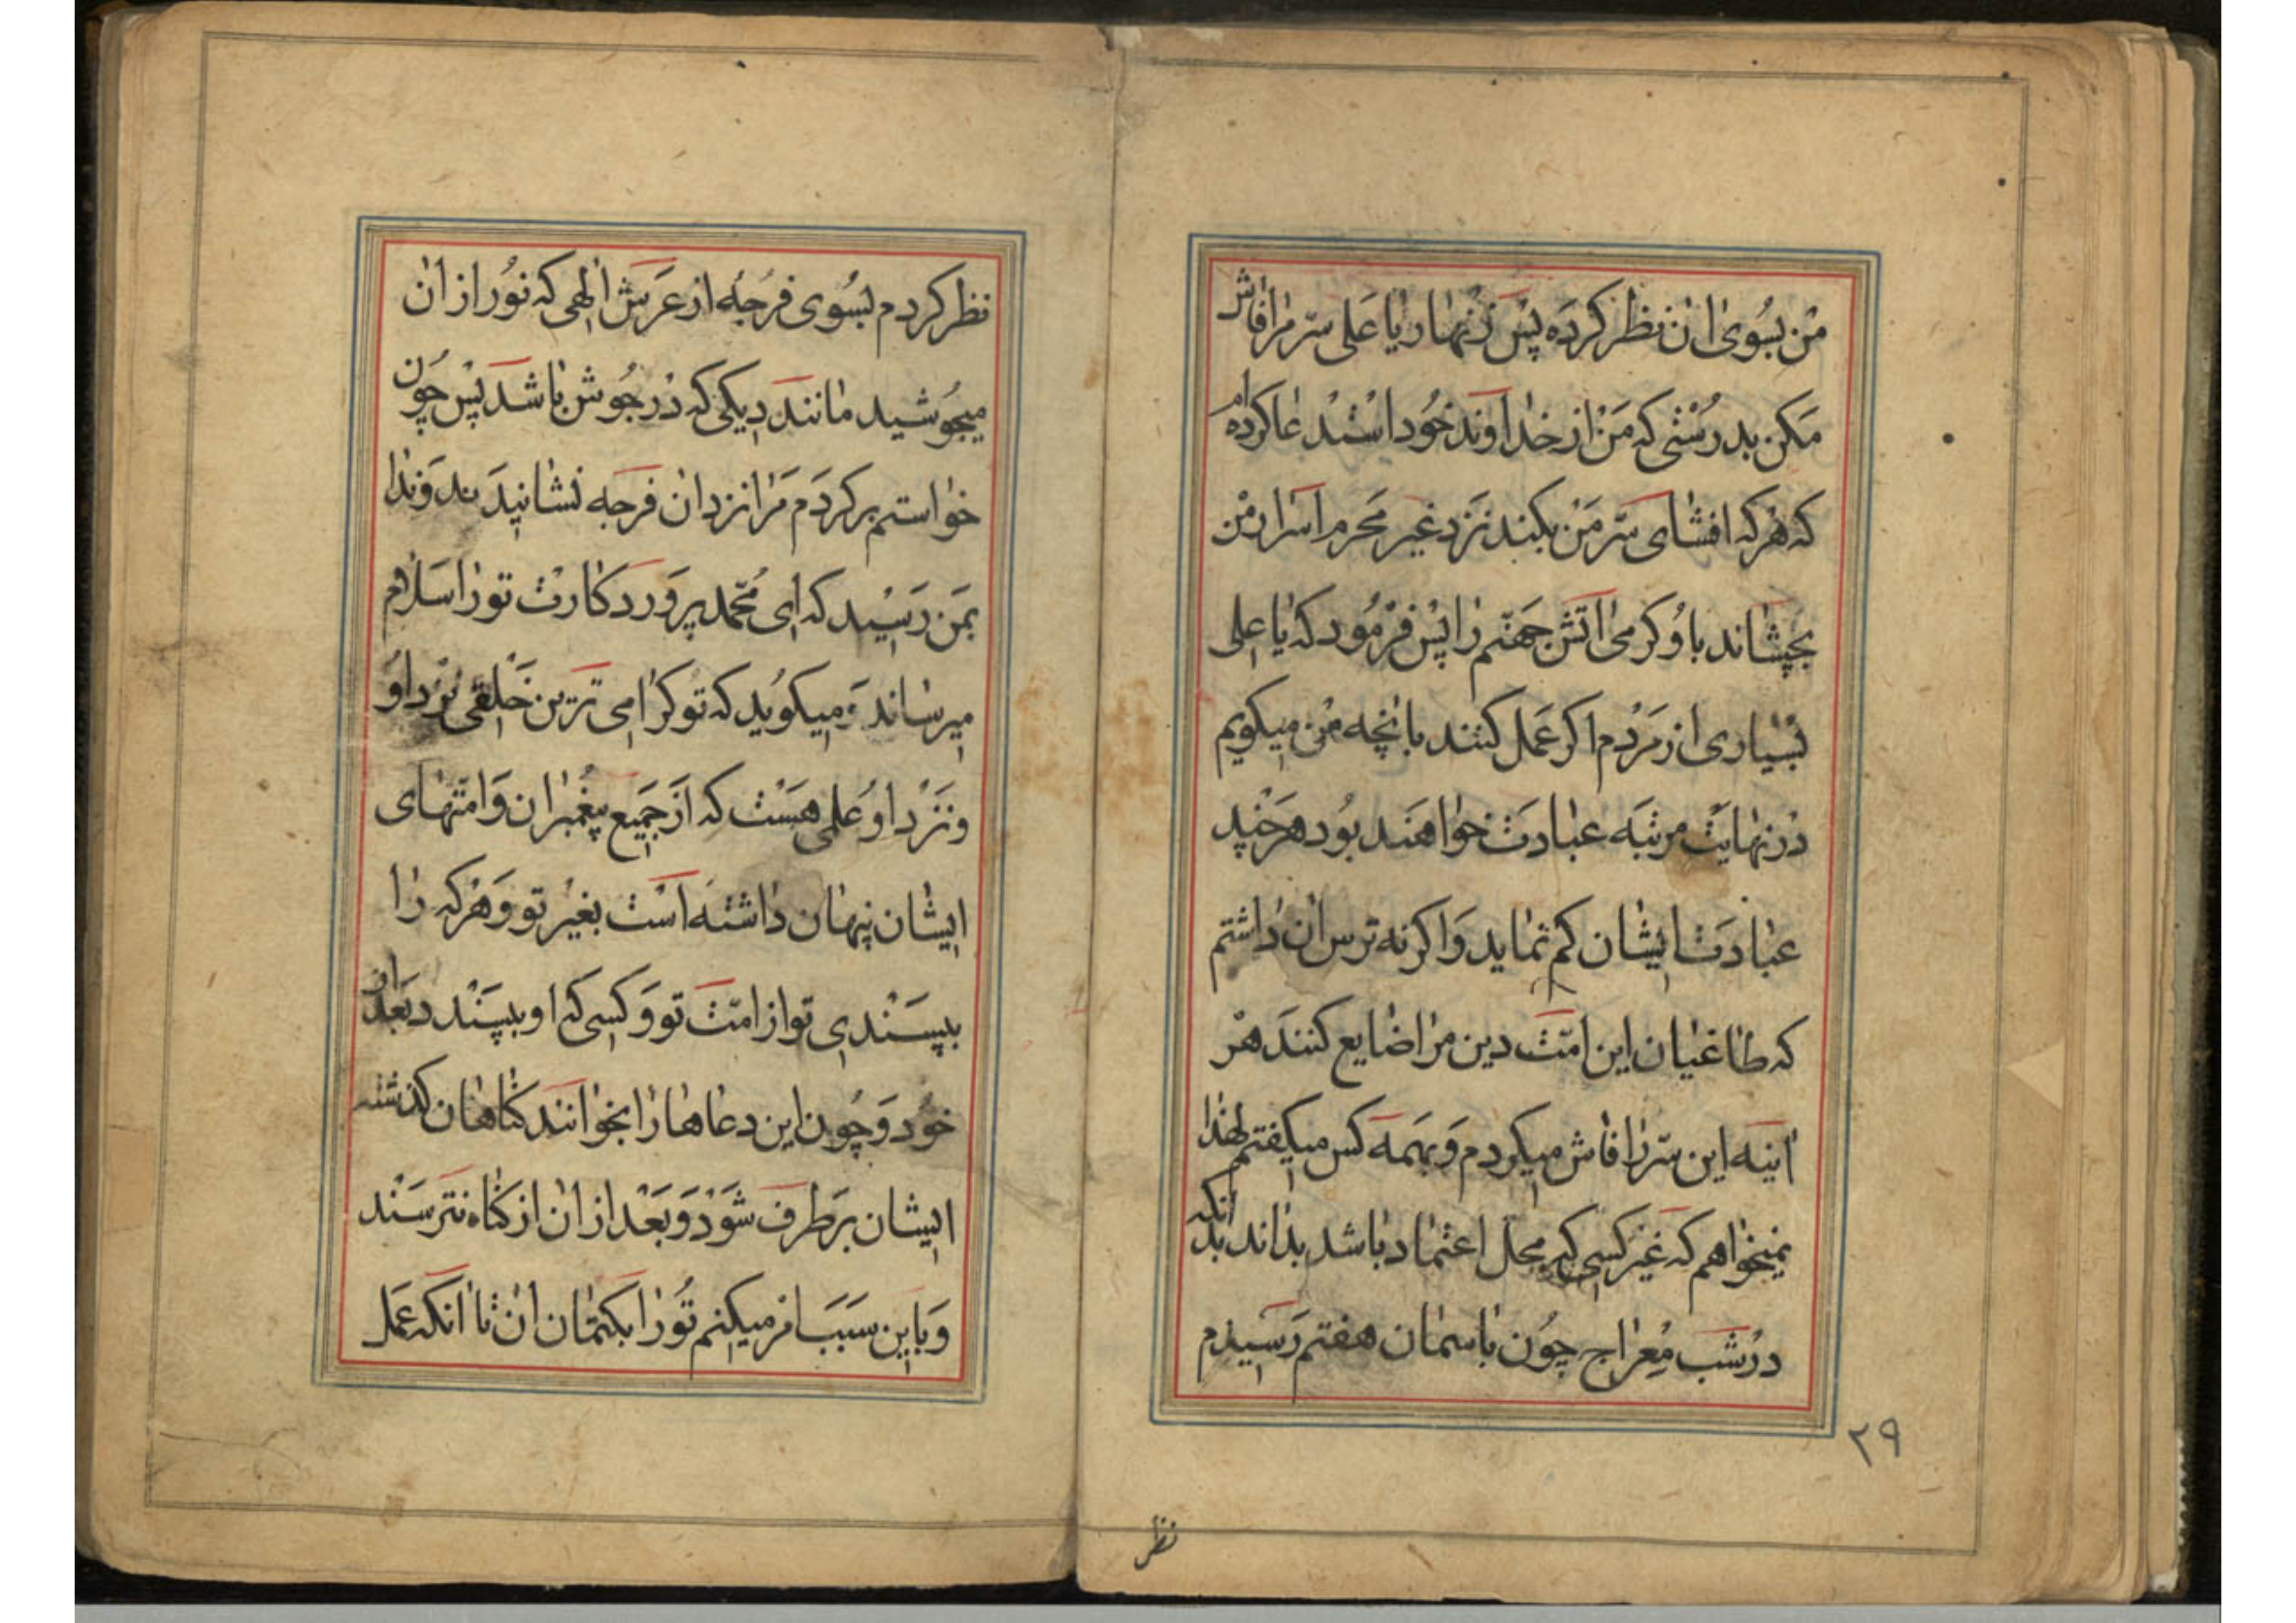 من بسوی ان نظر کرده پس زنهار یا علی سر مرا فاش
مکن بدرستی که من از خداوند خود استدعا کرده ام
که هرکه افشای سر من بکند نزد غیر محرم اسرار من
بچشاند باو کرمی اتش جهنم را پس فرمود که یا علی
بسیاری از مردم اکر عمل کنند بانچه من میکویم
در نهایت مرتبه عبادت خواهند بود هرچند
عبادت ایشان کم نماید و اکر نه ترس ان داشتم
که طاغیان این امت دین مرا ضایع کنند هر
اینه این سر را فاش میکردم و بهمه کس میکفتم لهذا
نمیخواهم که غیر کسی که محل اعتماد باشد بداند بدانکه
در شب معراج چون باسمان هفتم رسیدم
۲۹
نظر
نظر کردم بسوی فرجه از عرش الهی که نور از ان
میجوشید مانند دیکی که در جوش باشد پس چون
خواستم برکردم مرا نزد ان فرجه نشانید ند و ندا
بمن رسید که ای محمد پروردکارت تو را سلام
میرساند و میکوید که تو کرامی ترین خلقی نزد او
و نزد او علمی هست که از جمیع پیغمبران و امتهای
ایشان پنهان داشته است بغیر تو و هرکه را
بپسندی تو از امت تو و کسی که او بپسندد بعد از
خود و چون این دعاها را بخوانند کناهان کذشته
ایشان برطرف شود و بعد از ان از کناه نترسند
و باین سبب امر میکنم تو را بکتمان ان تا انکه عمل